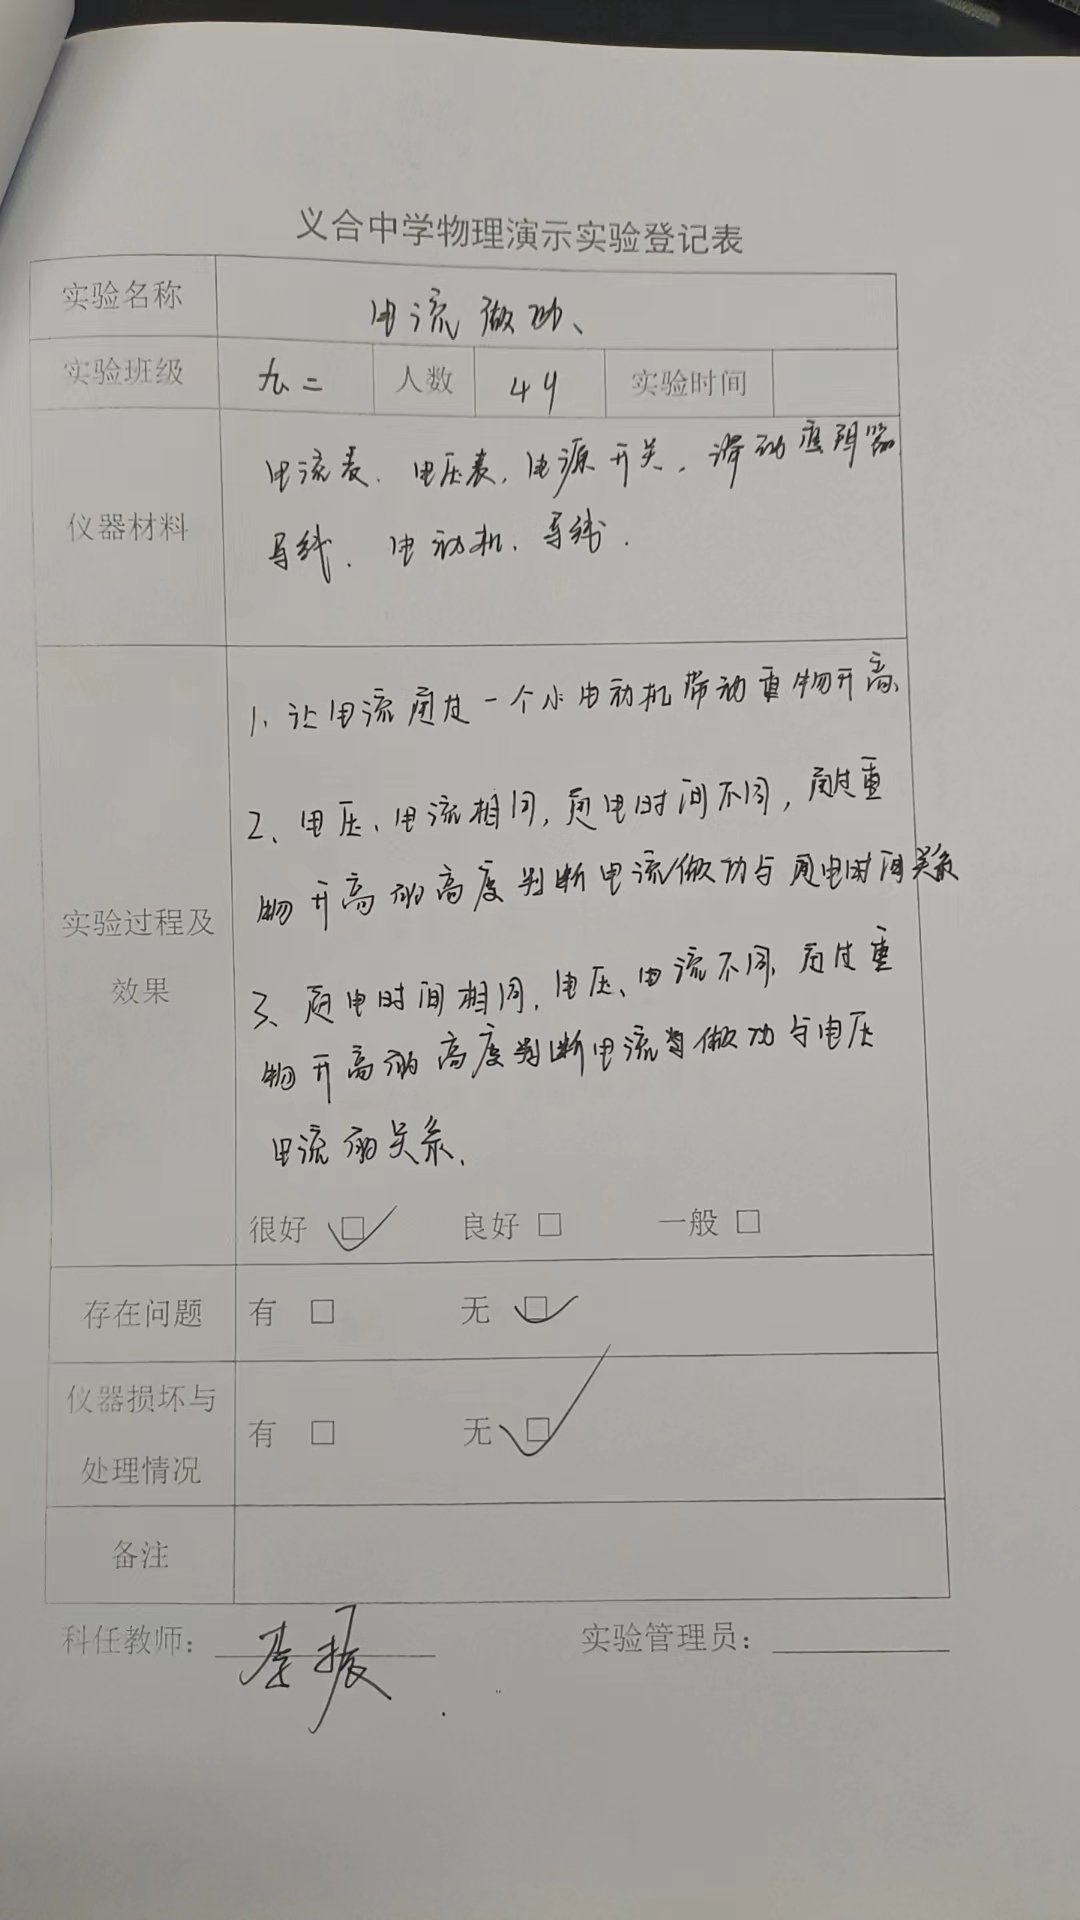 义合中学物理演示实验登记表
实验名称 电流做功、
实验班级 九二 人数 44 实验时间
仪器材料
电流表、电压表、电源开关、滑动变阻器
导线、电动机、导线.
实验过程及效果
1、让电流通过一个小电动机带动重物升高、
2、电压、电流相同,通电时间不同,通过重
物升高的高度判断电流做功与通电时间关系
3、通电时间相同,电压、电流不同,通过重
物升高的高度判断电流做功与电压
电流的关系、
很好 ☑ 良好 □ 一般 □
存在问题 有 □ 无 ☑
仪器损坏与
处理情况
有 □ 无 ☑
备注
科任教师: 李振 实验管理员: